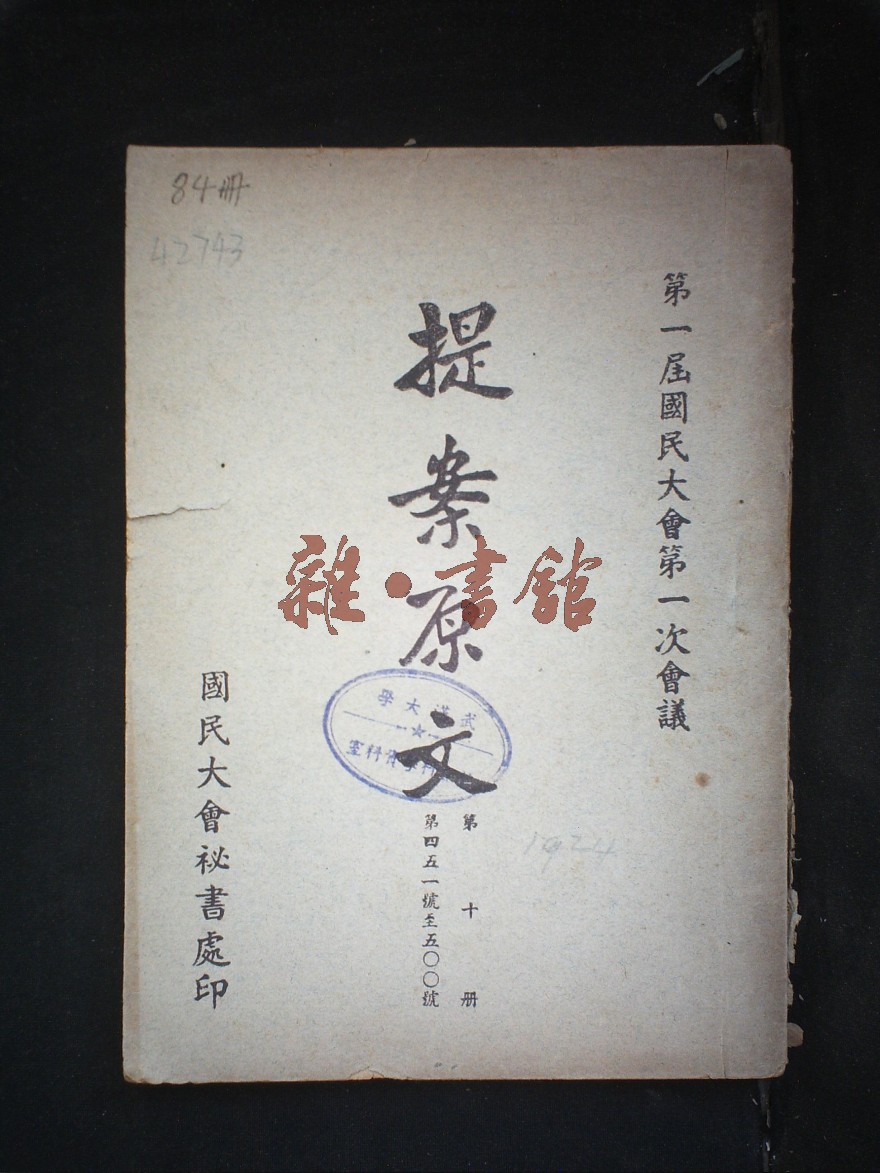 第一屆國民大會第一次會議
提案原文
第十册
第四五一號至五〇〇號
國民大會祕書處印
84册
42743
1924
雜·書館
武漢大學
料室